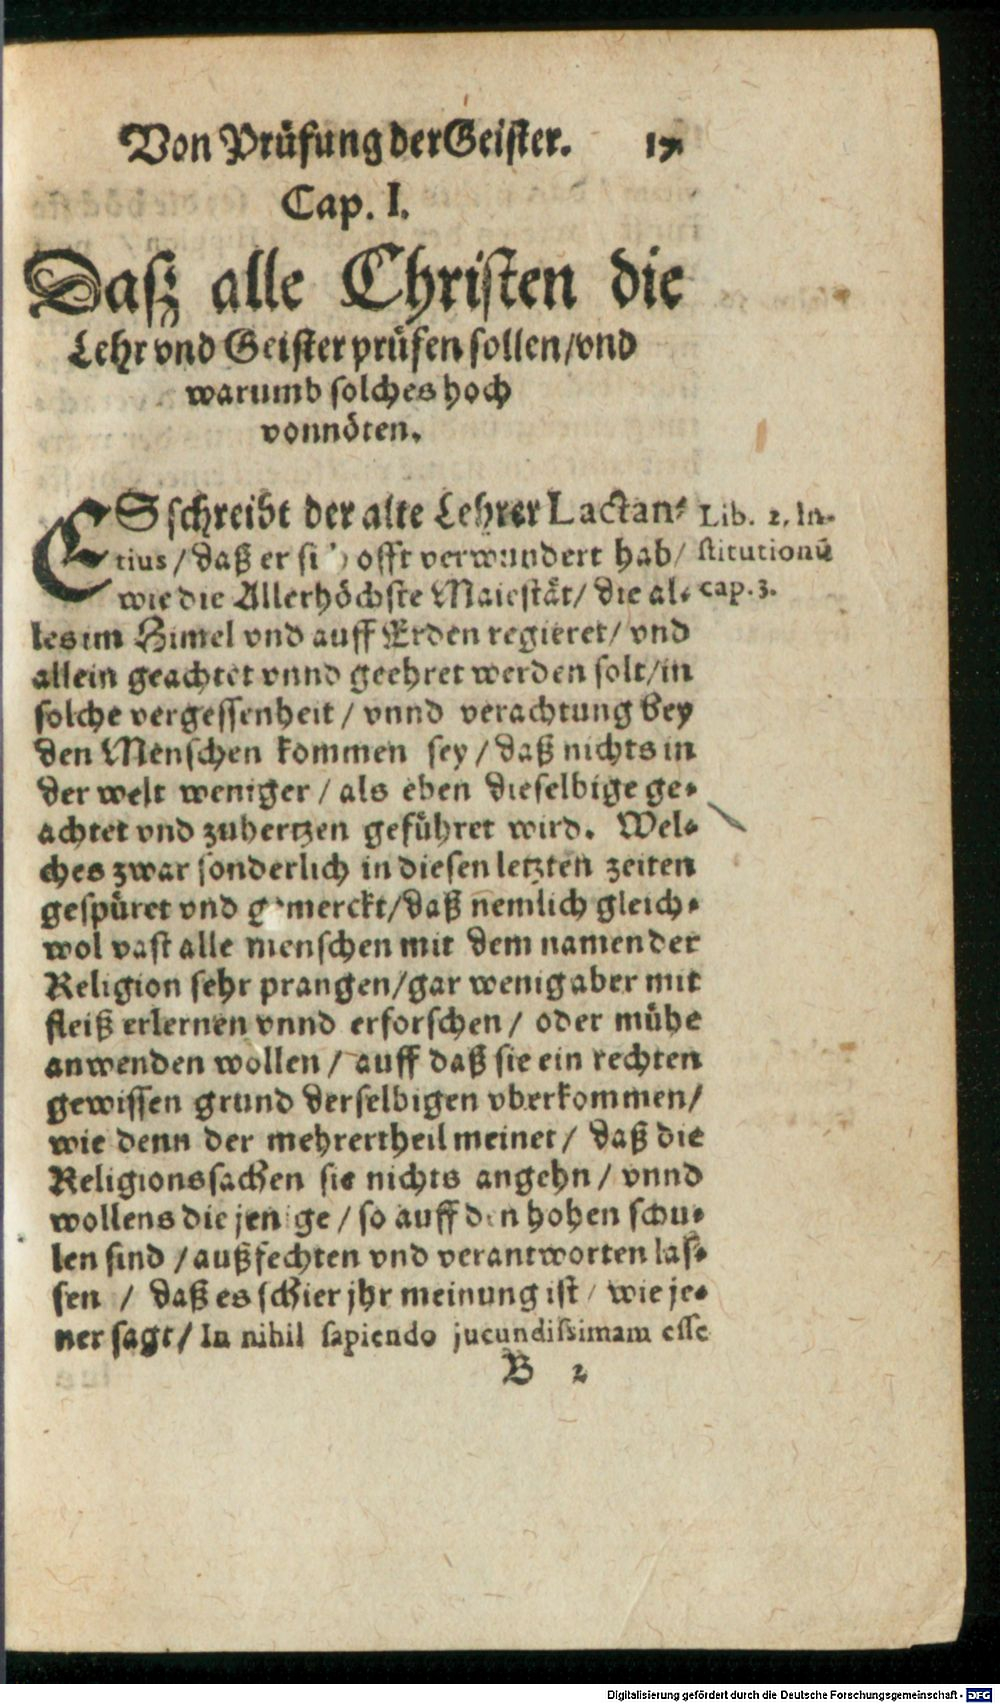 Von Prüfung der Geister. 17
Cap. I.
Daß alle Christen die
Lehr vnd Geister prüfen sollen/vnd
warumb solches hoch
vonnöten.
ES schreibt der alte Lehrer Lactan-
tius / daß er sich offt verwundert hab/
wie die Allerhöchste Maiestät/ die al-
Lib. 2. In-
stitutionū
cap. 3.
les im Himel vnd auff Erden regieret/ vnd
allein geachtet vnnd geehret werden solt/in
solche vergessenheit / vnnd verachtung bey
den Menschen kommen sey / daß nichts in
der welt weniger / als eben dieselbige ge-
achtet vnd zuhertzen geführet wird. Wel-
ches zwar sonderlich in diesen letzten zeiten
gespüret vnd gemerckt/daß nemlich gleich-
wol vast alle menschen mit dem namen der
Religion sehr prangen/gar wenig aber mit
fleiß erlernen vnnd erforschen / oder mühe
anwenden wollen / auff daß sie ein rechten
gewissen grund derselbigen vberkommen/
wie denn der mehrertheil meinet / daß die
Religionssachen sie nichts angehn / vnnd
wollens die jenige / so auff den hohen schu-
len sind / außfechten vnd verantworten las-
sen / daß es schier jhr meinung ist / wie je-
ner sagt/ In nihil sapiendo jucundissimam esse
B 2
Digitalisierung gefördert durch die Deutsche Forschungsgemeinschaft - DFG